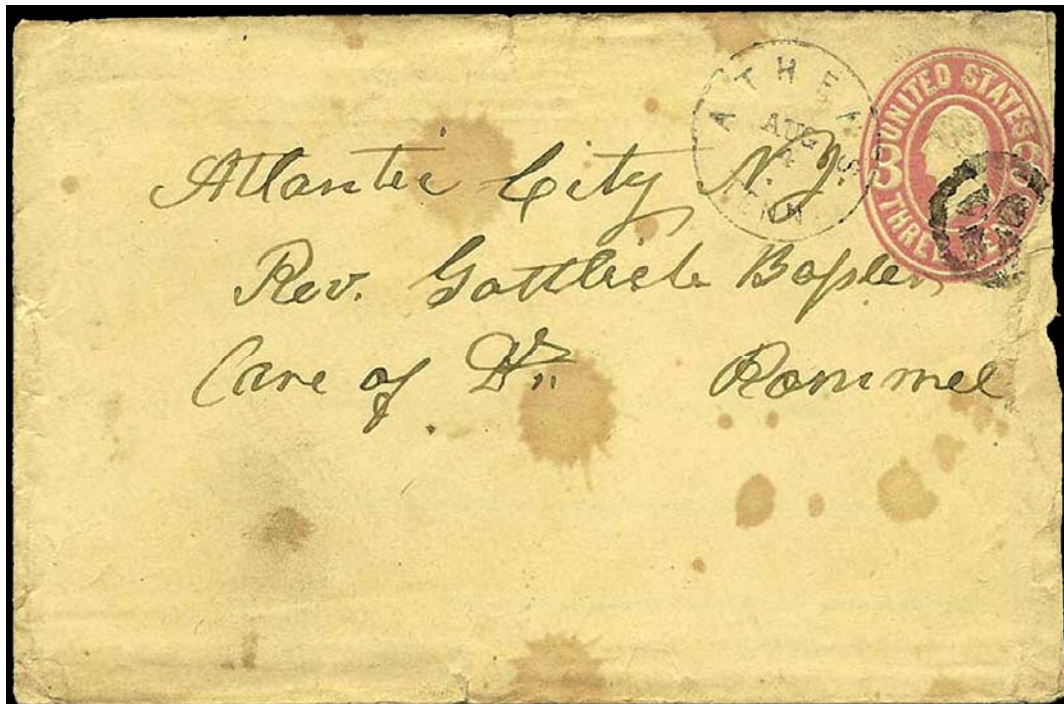 ATHENS
AUG
TENN
UNITED STATES
3 3
THREE CENTS
Atlantic City N. J.
Rev. Gottlieb Bassler
Care of Dr. Rommel